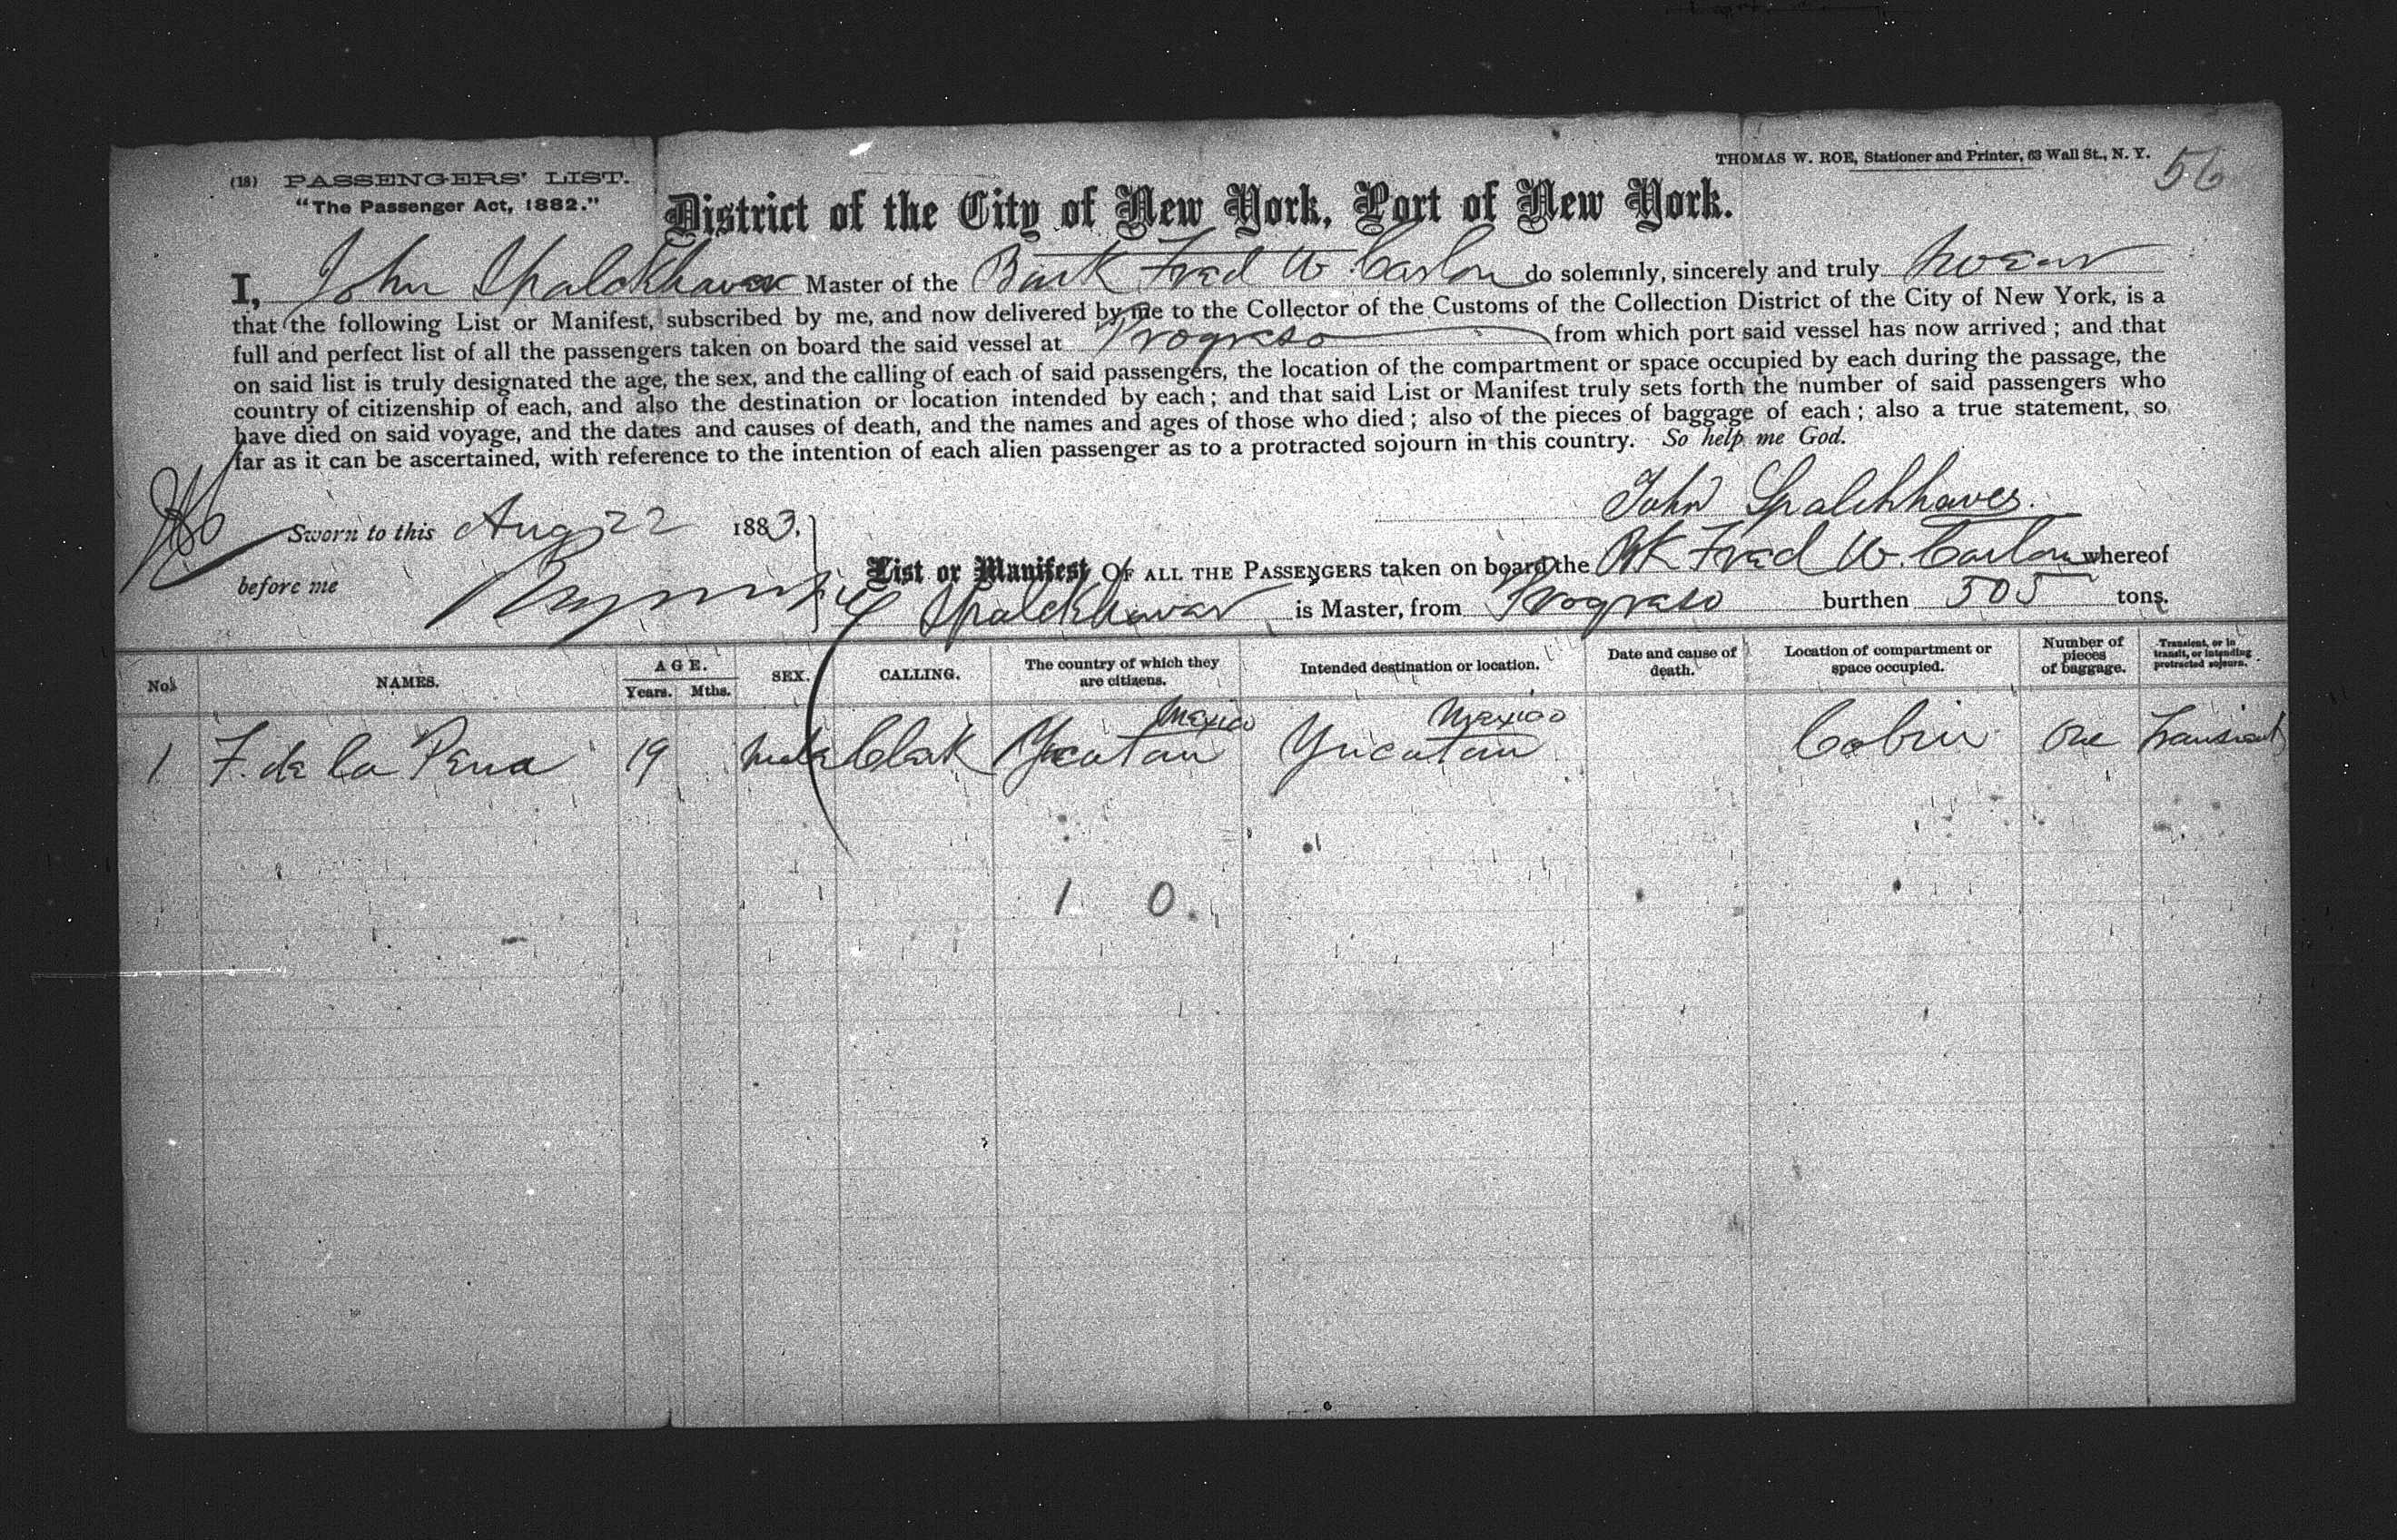 THOMAS W. ROE, Stationer and Printer, 63 Wall St., N. Y.
56
(18) PASSENGERS' LIST.
"The Passenger Act, 1882."
District of the City of New York, Port of New York.
I, John Spalckhaver Master of the Bark Fred W. Carlon do solemnly, sincerely and truly swear
that the following List or Manifest, subscribed by me, and now delivered by me to the Collector of the Customs of the Collection District of the City of New York, is a
full and perfect list of all the passengers taken on board the said vessel at Progreso from which port said vessel has now arrived; and that
on said list is truly designated the age, the sex, and the calling of each of said passengers, the location of the compartment or space occupied by each during the passage, the
country of citizenship of each, and also the destination or location intended by each; and that said List or Manifest truly sets forth the number of said passengers who
have died on said voyage, and the dates and causes of death, and the names and ages of those who died; also of the pieces of baggage of each; also a true statement, so
far as it can be ascertained, with reference to the intention of each alien passenger as to a protracted sojourn in this country. So help me God.
John Spalckhaver.
Sworn to this Aug 22 1883,
before me
List or Manifest OF ALL THE PASSENGERS taken on board the Bk Fred W. Carlon whereof
Spalckhaver is Master, from Progreso burthen 505 tons.
No. NAMES. AGE. Years. Mths. SEX. CALLING. The country of which they are citizens. Intended destination or location. Date and cause of death. Location of compartment or space occupied. Number of pieces of baggage. Transient, or in transit, or intending protracted sojourn.
Mexico Mexico
1 F. de la Pena 19 Male Clerk Yucatan Yucatan Cabin One Transient
1 0.